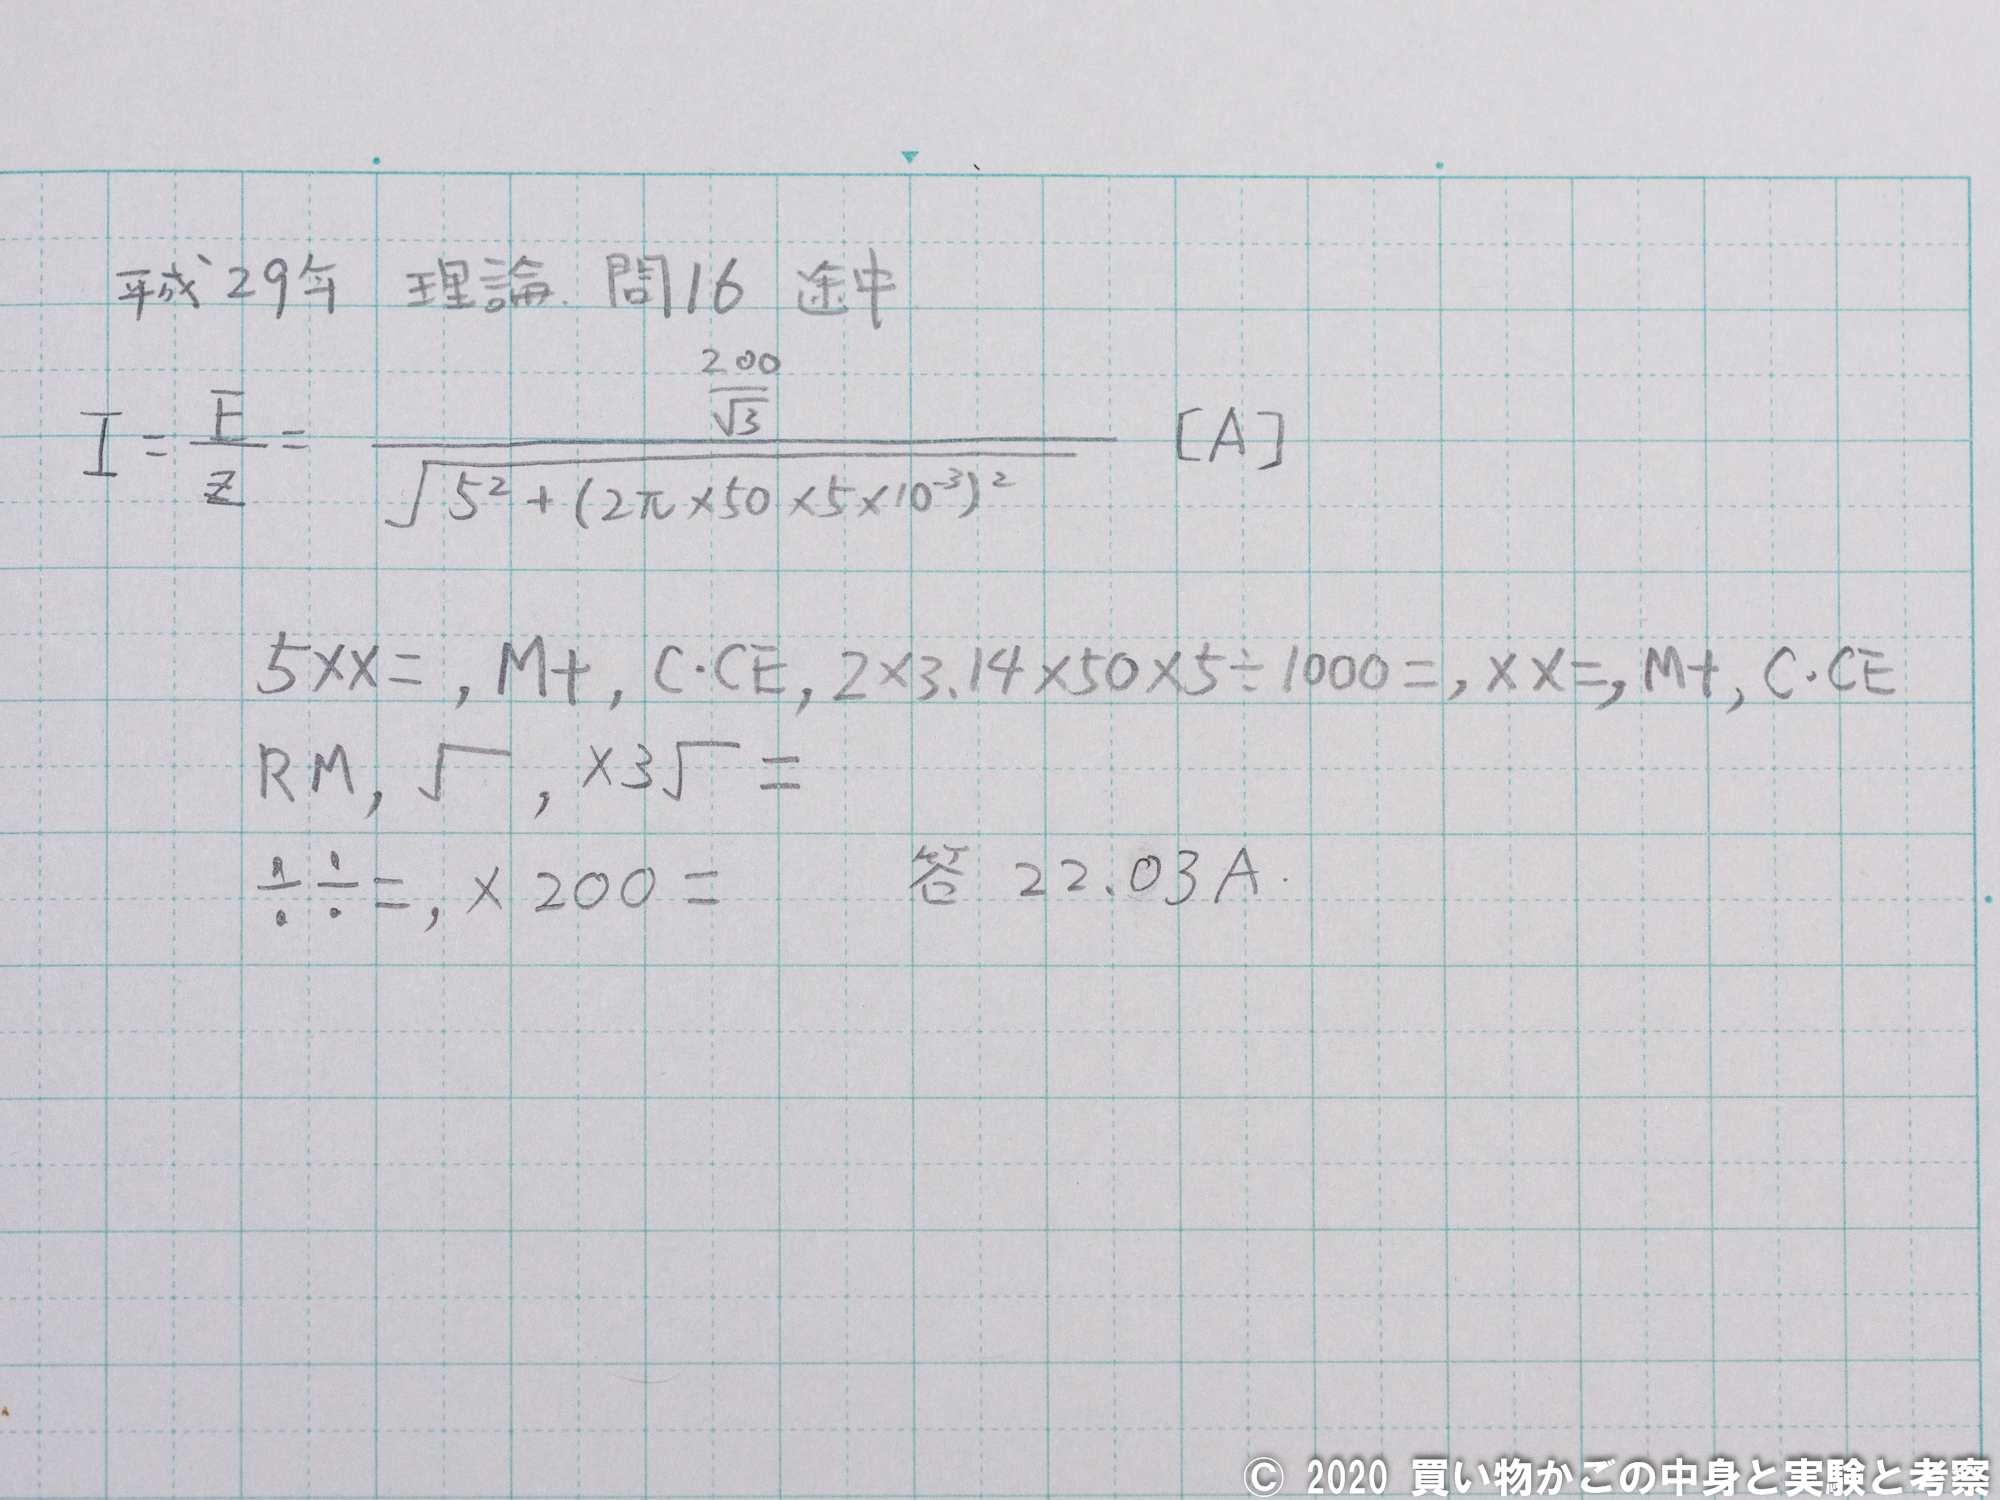 平成29年 理論 問16 途中
I = E/Z = (200/√3) / √(5² + (2π×50×5×10⁻³)²) [A]
5××=, M+, C·CE, 2×3.14×50×5÷1000=, ××=, M+, C·CE
RM, √, ×3√=
÷÷=, ×200= 答 22.03A.
© 2020 買い物かごの中身と実験と考察